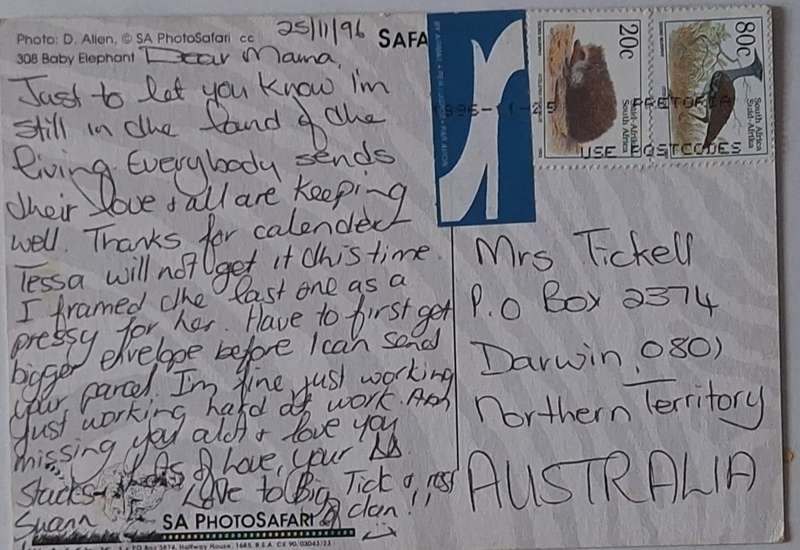 Photo: D. Allen, © SA PhotoSafari cc
308 Baby Elephant
SAFA
25/11/96
Dear Mama,
Just to let you know I'm
still in the land of the
living. Everybody sends
their love & all are keeping
well. Thanks for calender
Tessa will not get it this time
I framed the last one as a
pressy for her. Have to first get
bigger envelope before I can send
your parcel. I'm fine, just working
just working hard at work. Am
missing you alot & love you
Stacks & lots of love, your
Suann
Love to Big Tick & rest
of clan!
SA PHOTOSAFARI
P O Box 5874, Halfway House, 1685, R.S.A. CK 90/03043/23
BY AIRMAIL • PER LUGPOS • PAR AVION
1996-11-25 PRETORIA
USE POSTCODES
20c
Suid-Afrika
South Africa
80c
South Africa
Suid-Afrika
Mrs Tickell
P.O Box 2374
Darwin, 0801
Northern Territory
AUSTRALIA